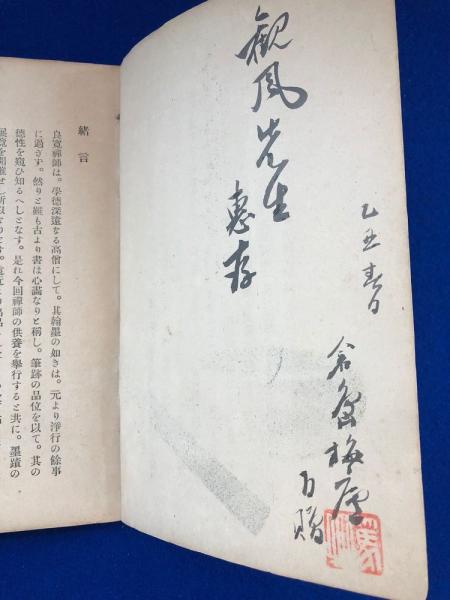 観風先生
惠存
乙丑春日
緒言
良寛禪師は。學德深遠なる高僧にして。其翰墨の如きは。元より淨行の餘事
に過きす。然りと雖も古より書は心畵なりと稱し。筆跡の品位を以て。其の
德性を窺ひ知るへしとなす。是れ今回禪師の供養を舉行すると共に。墨蹟の
展覽を開催せし所以なりとす。